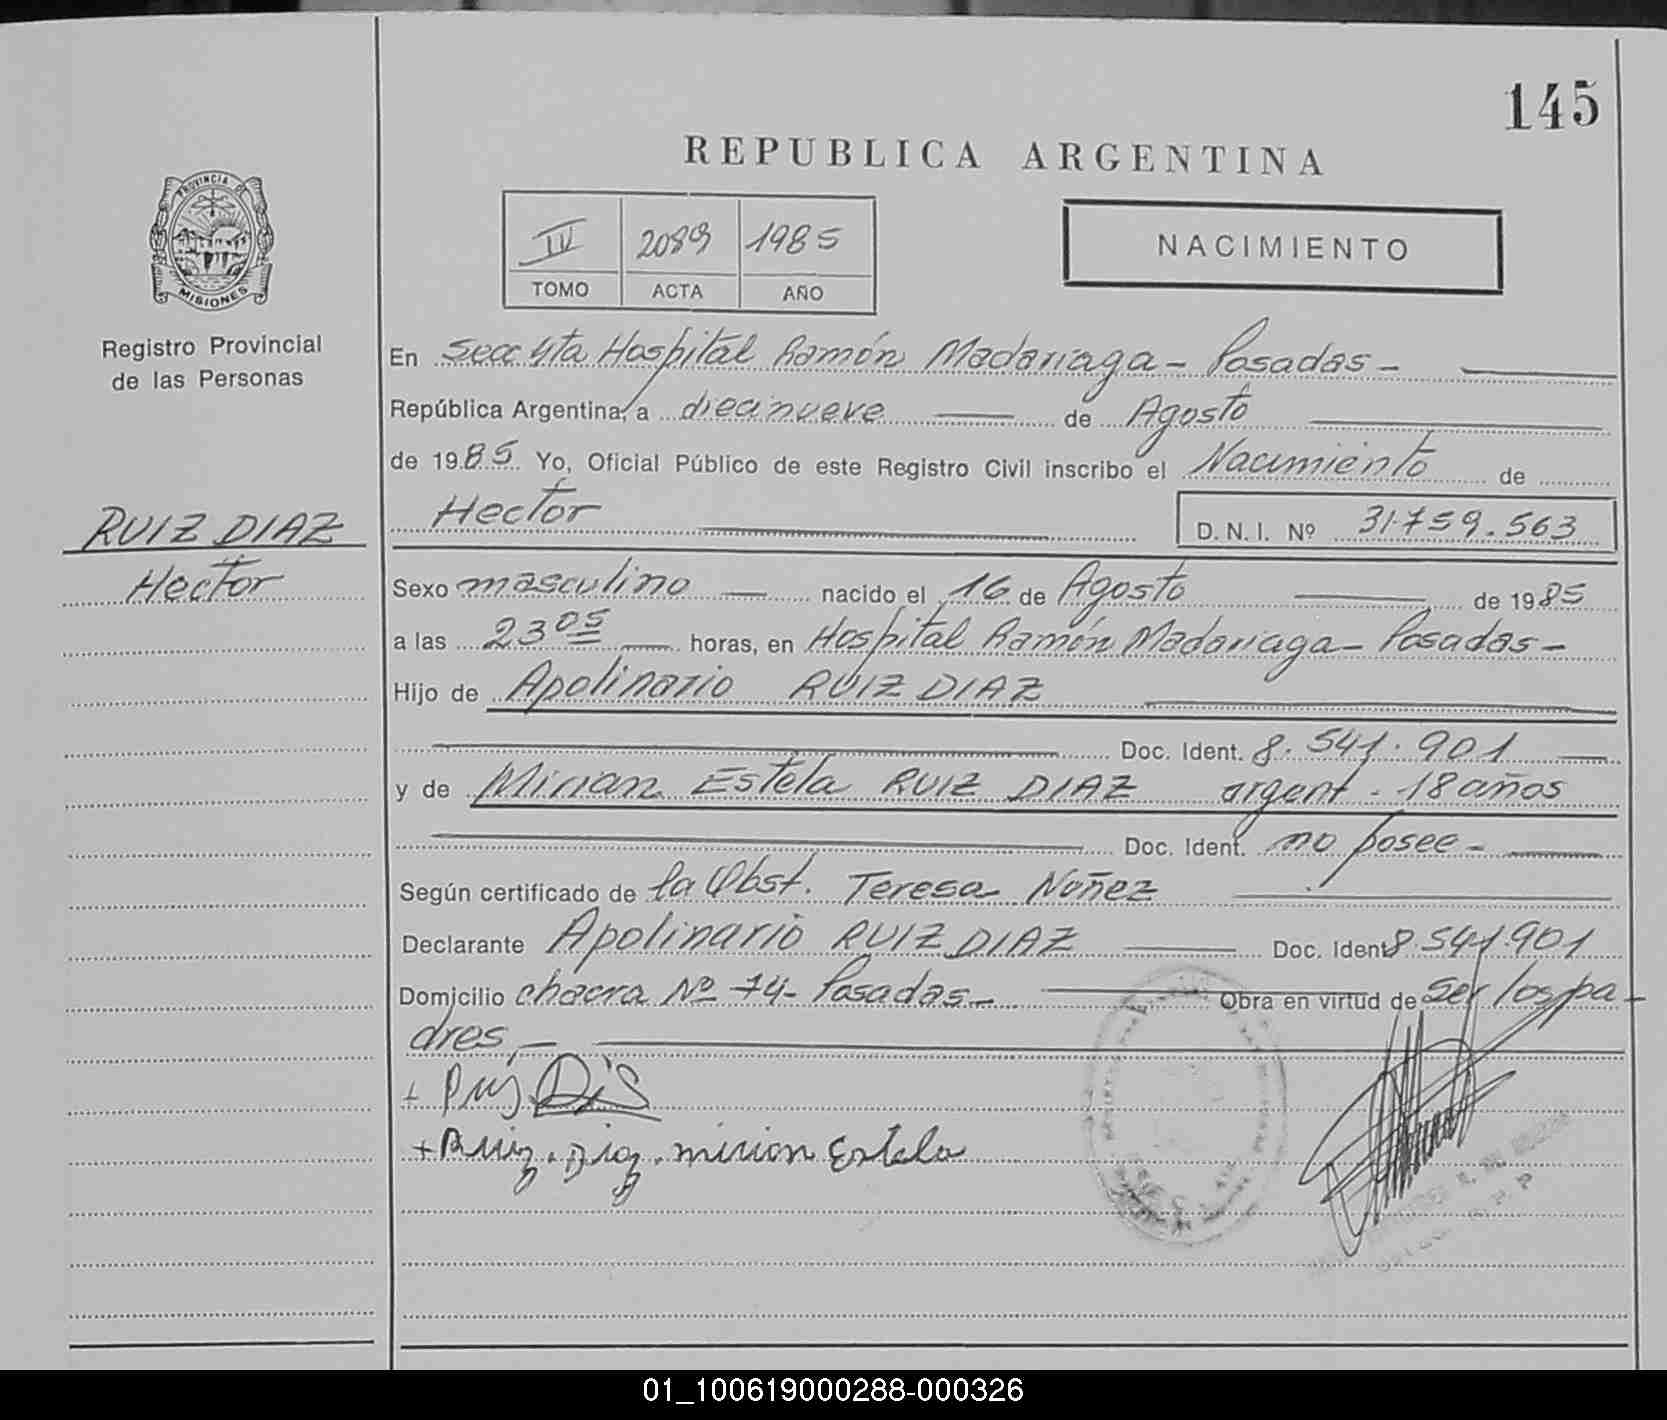 145
REPUBLICA ARGENTINA
PROVINCIA DE
MISIONES
Registro Provincial
de las Personas
IV 2089 1985
TOMO ACTA AÑO
NACIMIENTO
En Secc 4ta Hospital Ramón Madariaga - Posadas -
República Argentina, a diecinueve de Agosto
de 1985. Yo, Oficial Público de este Registro Civil inscribo el Nacimiento de
Hector D.N.I. Nº 31.759.563
RUIZ DIAZ
Hector
Sexo masculino nacido el 16 de Agosto de 1985
a las 23 05 horas, en Hospital Ramón Madariaga - Posadas -
Hijo de Apolinario RUIZ DIAZ
Doc. Ident. 8.541.901
y de Mirian Estela RUIZ DIAZ argent. 18 años
Doc. Ident. no posee -
Según certificado de la Obst. Teresa Nuñez
Declarante Apolinario RUIZ DIAZ Doc. Ident 8.541.901
Domicilio chacra Nº 74 - Posadas - Obra en virtud de ser los pa-
dres, -
+ Ruiz. Diaz. mirian Estela
01_100619000288-000326